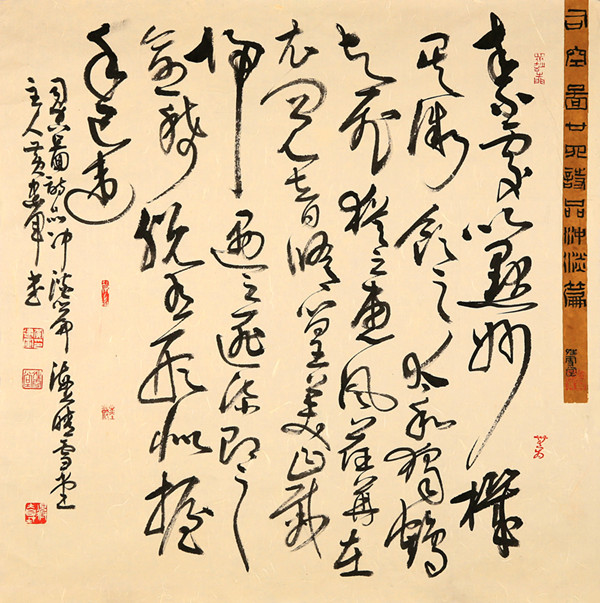 司空圖廿四詩品冲淡篇
素處以默妙機
其微飲之太和獨鶴
與飛猶之惠風荏苒在
衣閱音修篁美曰載
歸遇之匪深即之
愈稀脱有形似握
手已違
司空圖詩品冲淡篇晴雪堂
主人黃书